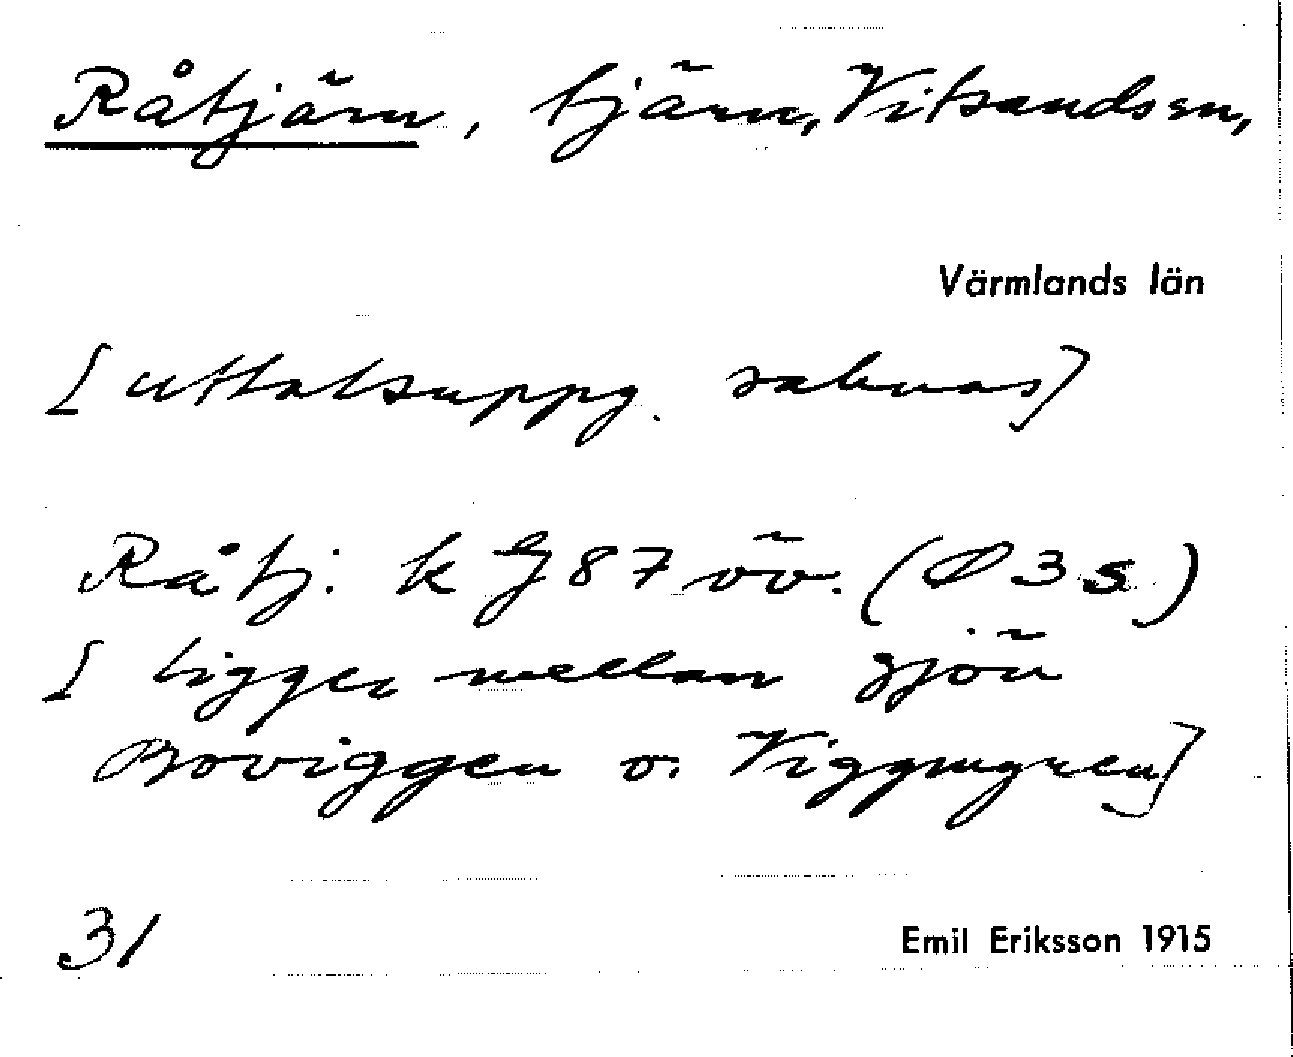 Råtjärn, tjärn, Vitsands sn,
Värmlands län
[uttalsuppg. saknas]
Råtj. k GJ 87 öv. (Ø 3 s.)
[ligger mellan sjön
Boviggen o. Viggmyren]
31
Emil Eriksson 1915